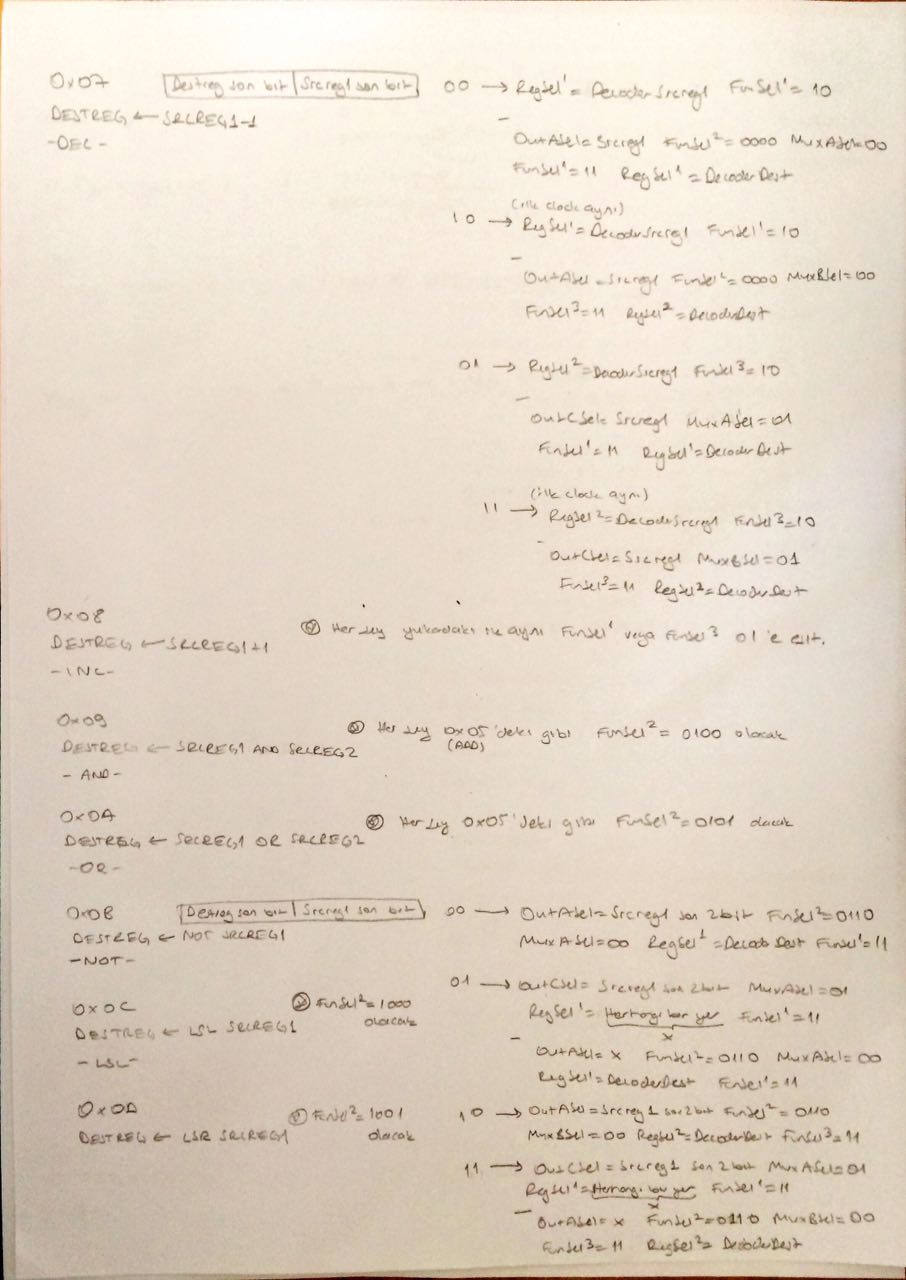 0x07
Destreg son bit | Srcreg1 son bit
DESTREG ← SRCREG1-1
-DEC-
00 → RegSel¹ = DecoderSrcreg1 FunSel¹ = 10
-
OutASel = Srcreg1 FunSel² = 0000 MuxASel=00
FunSel¹ = 11 RegSel¹ = DecoderDest
(ilk clock aynı)
10 → RegSel¹ = DecoderSrcreg1 FunSel¹ = 10
-
OutASel = Srcreg1 FunSel² = 0000 MuxBSel=00
FunSel³ = 11 RegSel² = DecoderDest
01 → RegSel² = DecoderSrcreg1 FunSel³ = 10
-
OutCSel = Srcreg1 MuxASel = 01
FunSel¹ = 11 RegSel¹ = DecoderDest
(ilk clock aynı)
11 → RegSel² = DecoderSrcreg1 FunSel³ = 10
-
OutCSel = Srcreg1 MuxBSel = 01
FunSel³ = 11 RegSel² = DecoderDest
0x08
DESTREG ← SRCREG1+1
-INC-
Her şey yukadaki ile aynı FunSel¹ veya FunSel³ 01'e eşit.
0x09
DESTREG ← SRCREG1 AND SRCREG2
- AND-
Her şey 0x05'deki gibi FunSel² = 0100 olacak
(ADD)
0x0A
DESTREG ← SRCREG1 OR SRCREG2
-OR-
Her şey 0x05'deki gibi FunSel² = 0101 olacak
0x0B
Destreg son bit | Srcreg1 son bit
DESTREG ← NOT SRCREG1
-NOT-
00 → OutASel = Srcreg1 son 2 bit FunSel² = 0110
MuxASel = 00 RegSel¹ = DecoderDest FunSel¹ = 11
01 → OutCSel = Srcreg1 son 2 bit MuxASel = 01
RegSel¹ = Herhangi bir yer FunSel¹ = 11
x
-
OutASel = x FunSel² = 0110 MuxASel = 00
RegSel¹ = DecoderDest FunSel¹ = 11
10 → OutASel = Srcreg1 son 2 bit FunSel² = 0110
MuxBSel = 00 RegSel² = DecoderDest FunSel³ = 11
11 → OutCSel = Srcreg1 son 2 bit MuxASel = 01
RegSel¹ = Herhangi bir yer FunSel¹ = 11
x
-
OutASel = x FunSel² = 0110 MuxBSel = 00
FunSel³ = 11 RegSel² = DecoderDest
0x0C
DESTREG ← LSL SRCREG1
- LSL-
FunSel² = 1000
olacak
0x0D
DESTREG ← LSR SRCREG1
FunSel² = 1001
olacak